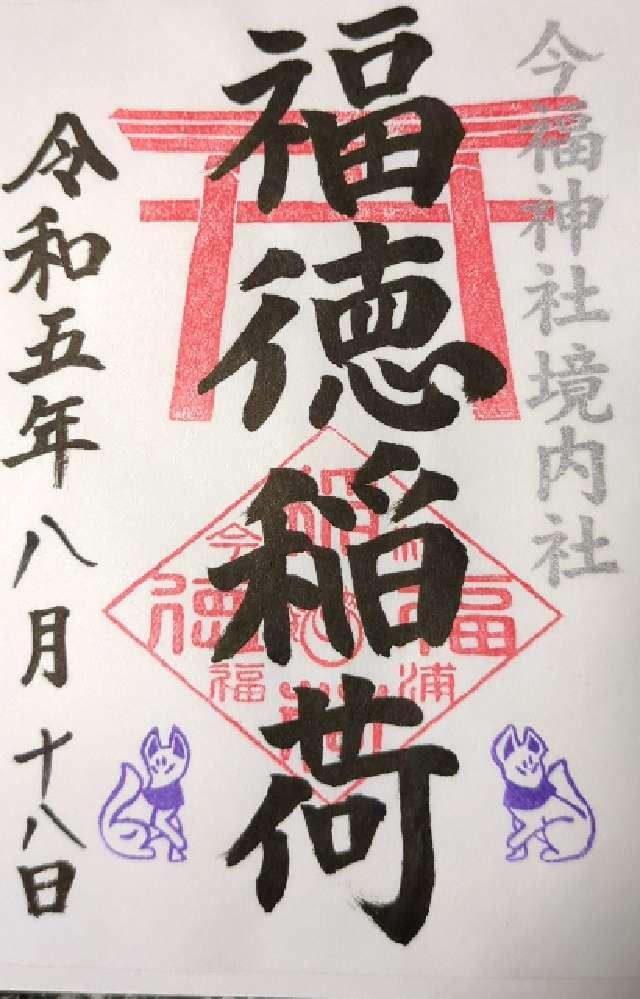 今福神社境内社
福徳稲荷
令和五年八月十八日
福
徳
今
福
浦